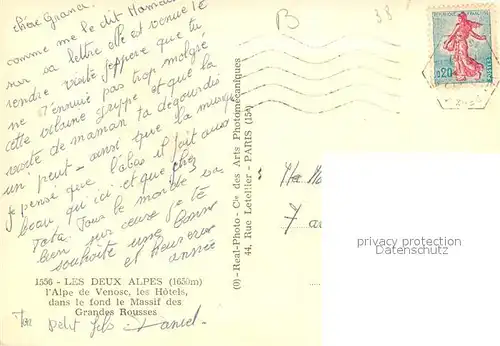 chère
comme me le dit Maman
sur sa lettre elle est venue te
rendre visite j'espère que tu
ne t'ennuie pas trop malgré
cette vilaine grippe et que la
visite de maman t'a dégourdis
un peut - ainsi que la
je pense que l'abas il fait aussi
beau qu'ici et que chez
Tata. Tous le monde va
bien sur ceuse je te
souhaite une bonne
et heureuse
année
1556 - LES DEUX ALPES (1650m)
l'Alpe de Venosc, les Hôtels,
dans le fond le Massif des
Grandes Rousses
Ton petit fils Daniel
(O) - Real-Photo - Cie des Arts Photomécaniques
44, Rue Letellier - PARIS (15e)
B
0,20
POSTES
7
protection copyright